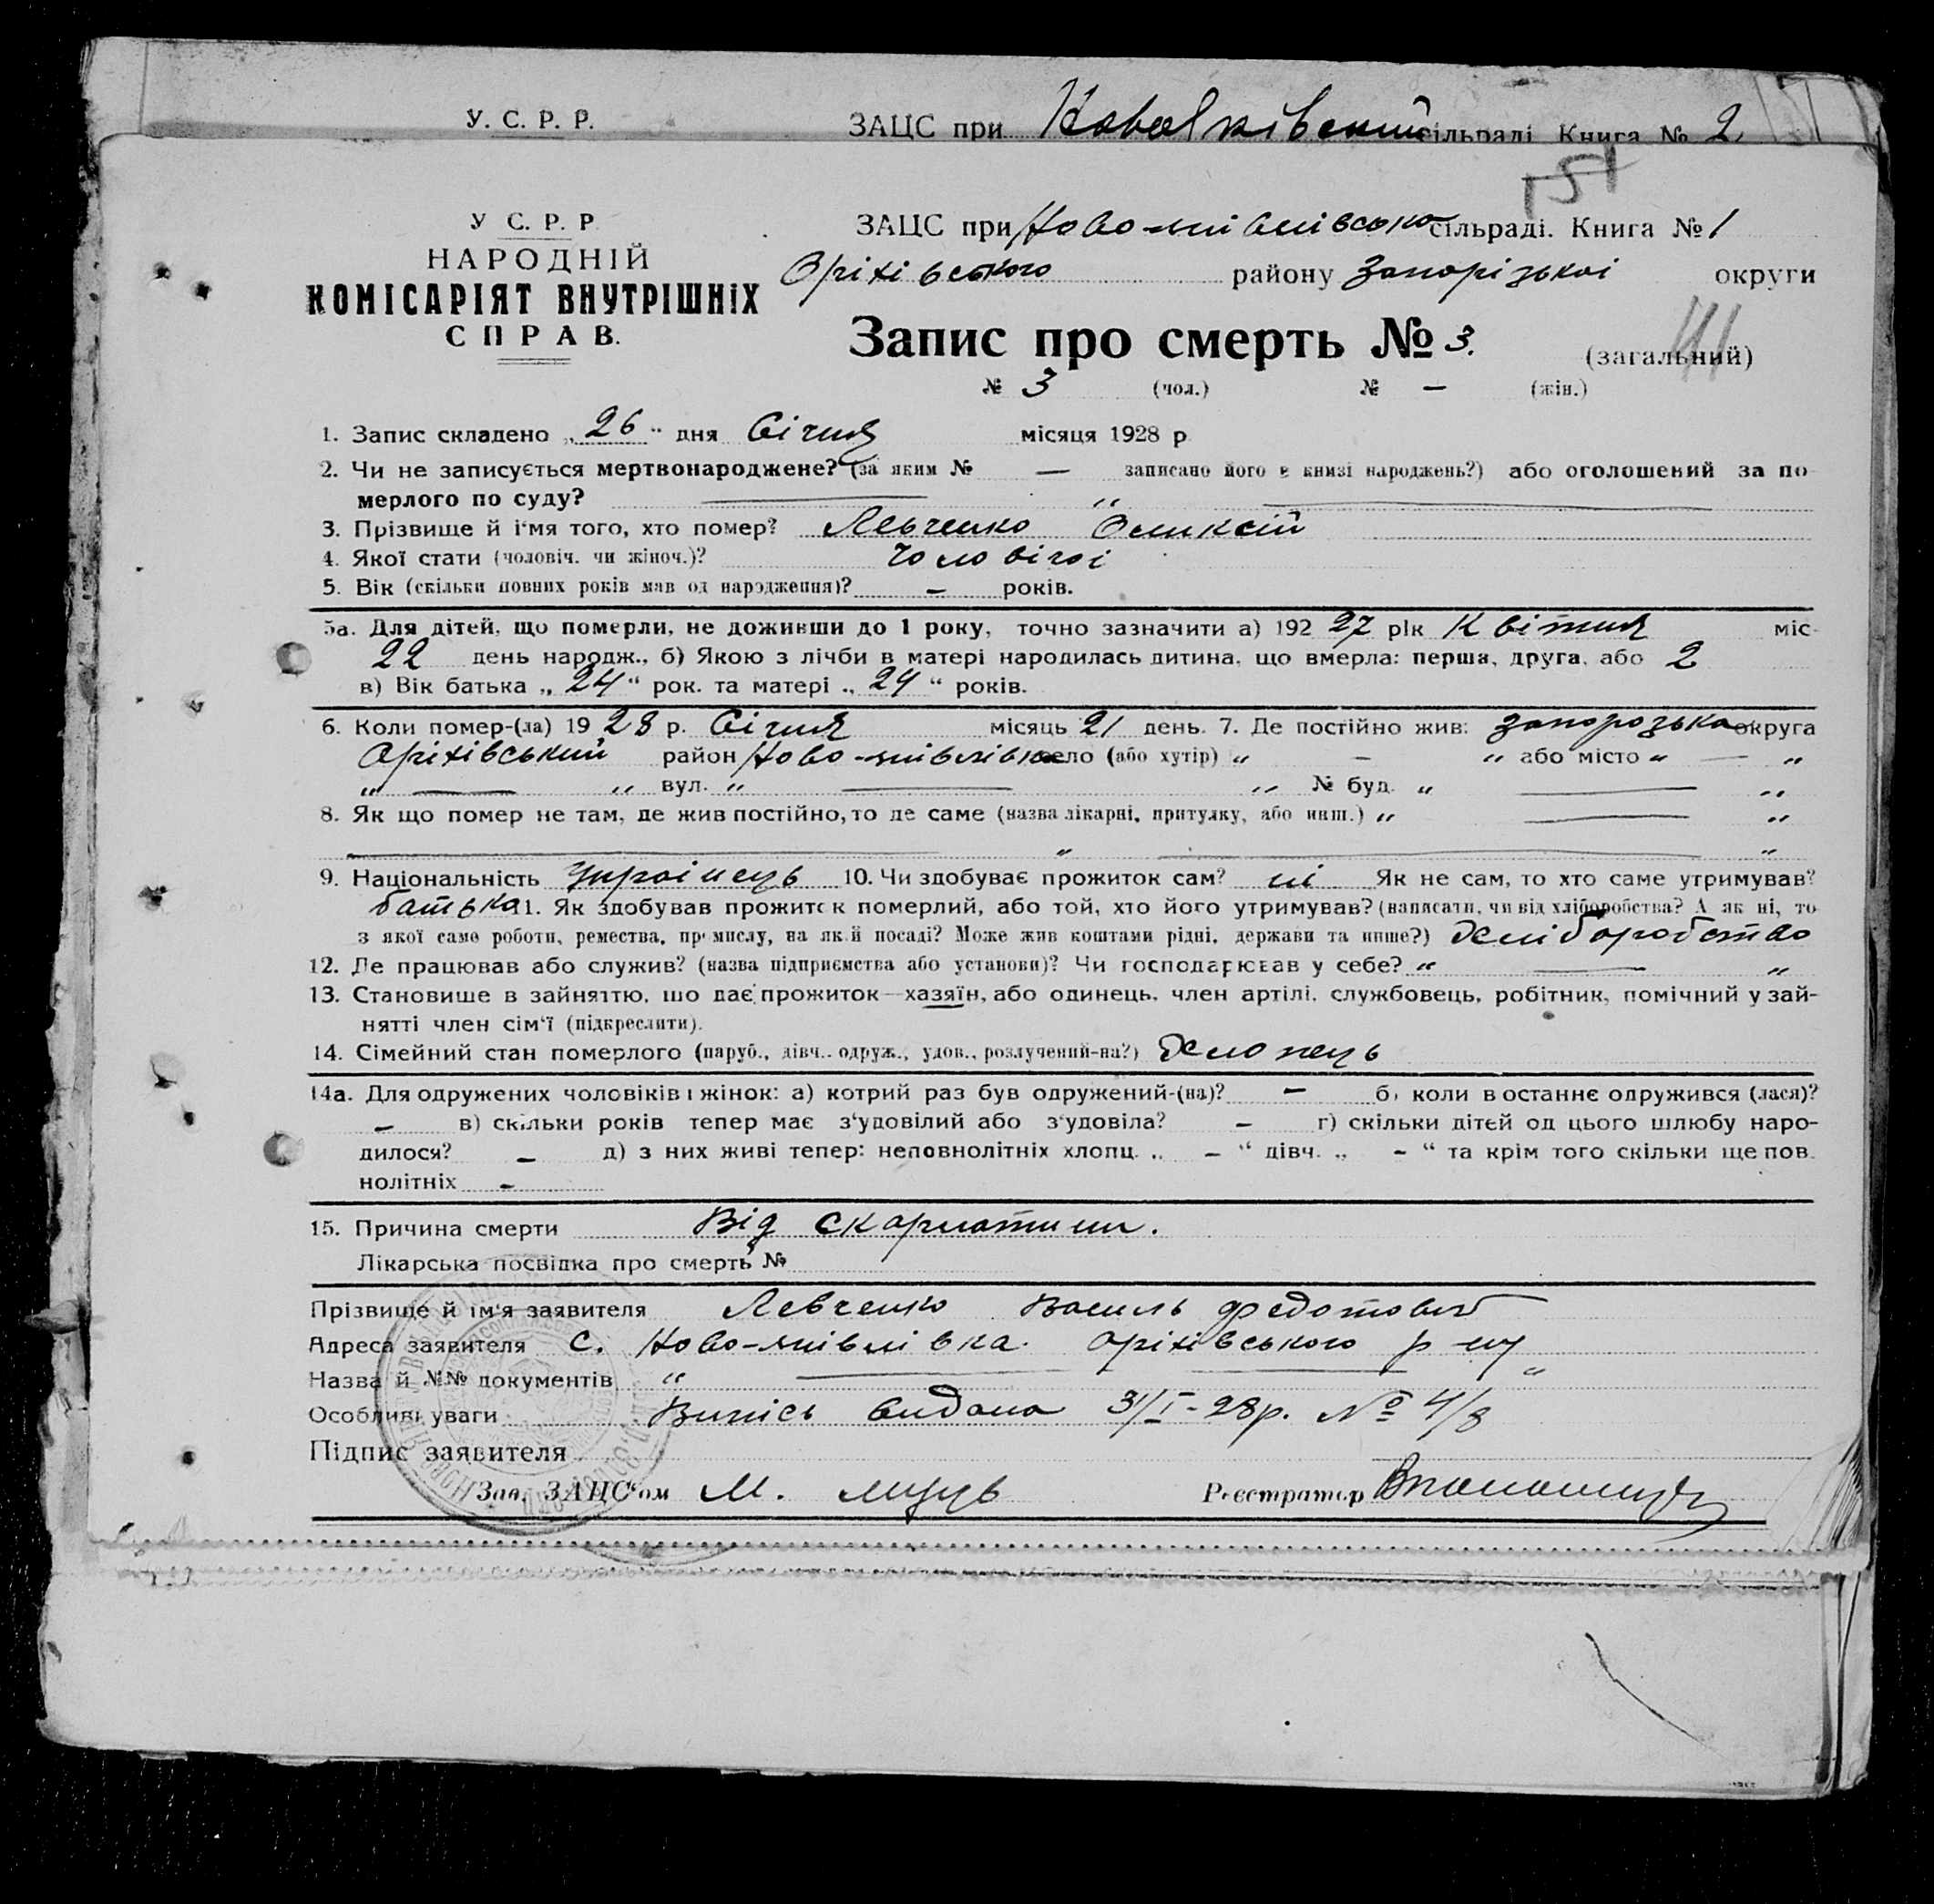 У. С. Р. Р. ЗАЦС при сільраді Книга № 2
151
У С. Р. Р ЗАЦС при Ново-Івалівсько сільраді. Книга № 1
НАРОДНІЙ Оріхівського району Запорізької округи
КОМІСАРІЯТ ВНУТРІШНІХ
СПРАВ. Запис про смерть № 3. (загальний)
№ 3 (чол.) № — (жін.)
1. Запис складено „ 26 " дня Січня місяця 1928 р
2. Чи не записується мертвонароджене? (за яким № — записано його в книзі народжень?) або оголошений за по
мерлого по суду? — „ —
3. Прізвище й і'мя того, хто помер? Левченко Олексій
4. Якої стати (чоловіч. чи жіноч.)? Чоловічої
5. Вік (скільки повних років мав од народження)? — років.
5а. Для дітей, що померли, не доживши до 1 року, точно зазначити а) 192 27 рік Квітня міс-
22 день народж., б) Якою з лічби в матері народилась дитина, що вмерла: перша, друга, або 2
в) Вік батька „ 24 " рок. та матері „ 24 " років.
6. Коли помер-(ла) 19 28 р. Січня місяць 21 день. 7. Де постійно жив: Запорозька округа
Оріхівський район село (або хутір) „ — „ або місто „ — „
„ — „ вул. „ — „ № буд. „ — „
8. Як що помер не там, де жив постійно, то де саме (назва лікарні, притулку, або инш.) „ — „
— „ — „
9. Національність Українець 10. Чи здобуває прожиток сам? ні Як не сам, то хто саме утримував?
батько 11. Як здобував прожиток померлий, або той, хто його утримував? (написати, чи від хліборобства? А як ні, то
з якої саме роботи, ремества, промислу, на якій посаді? Може жив коштами рідні, держави та инше?) Хліборобство
12. Де працював або служив? (назва підприємства або установи)? Чи господарював у себе? „ — „
13. Становище в зайняттю, що дає прожиток—хазяїн, або одинець, член артілі, службовець, робітник, помічний у зай-
нятті член сім'ї (підкреслити).
14. Сімейний стан померлого (паруб., дівч., одруж., удов., розлучений-на?) Хлопець
14а. Для одружених чоловіків і жінок: а) котрий раз був одружений-(на)? — б) коли в останнє одружився (лася)?
— в) скільки років тепер має з'удовілий або з'удовіла? — г) скільки дітей од цього шлюбу наро-
дилося? — д) з них живі тепер: неповнолітніх хлопц. „ — " дівч. „ — " та крім того скільки ще пов
нолітніх —
15. Причина смерти Від скарлатини.
Лікарська посвідка про смерть №
Прізвище й ім'я заявителя Левченко Василь Федотович
Адреса заявителя с. Оріхівського р-ну
Назва й №№ документів „ — „
Особливі уваги Випісь видана 31/I-28р. № 4/8
Підпис заявителя
Зав. ЗАЦС'ом М. Реєстратор